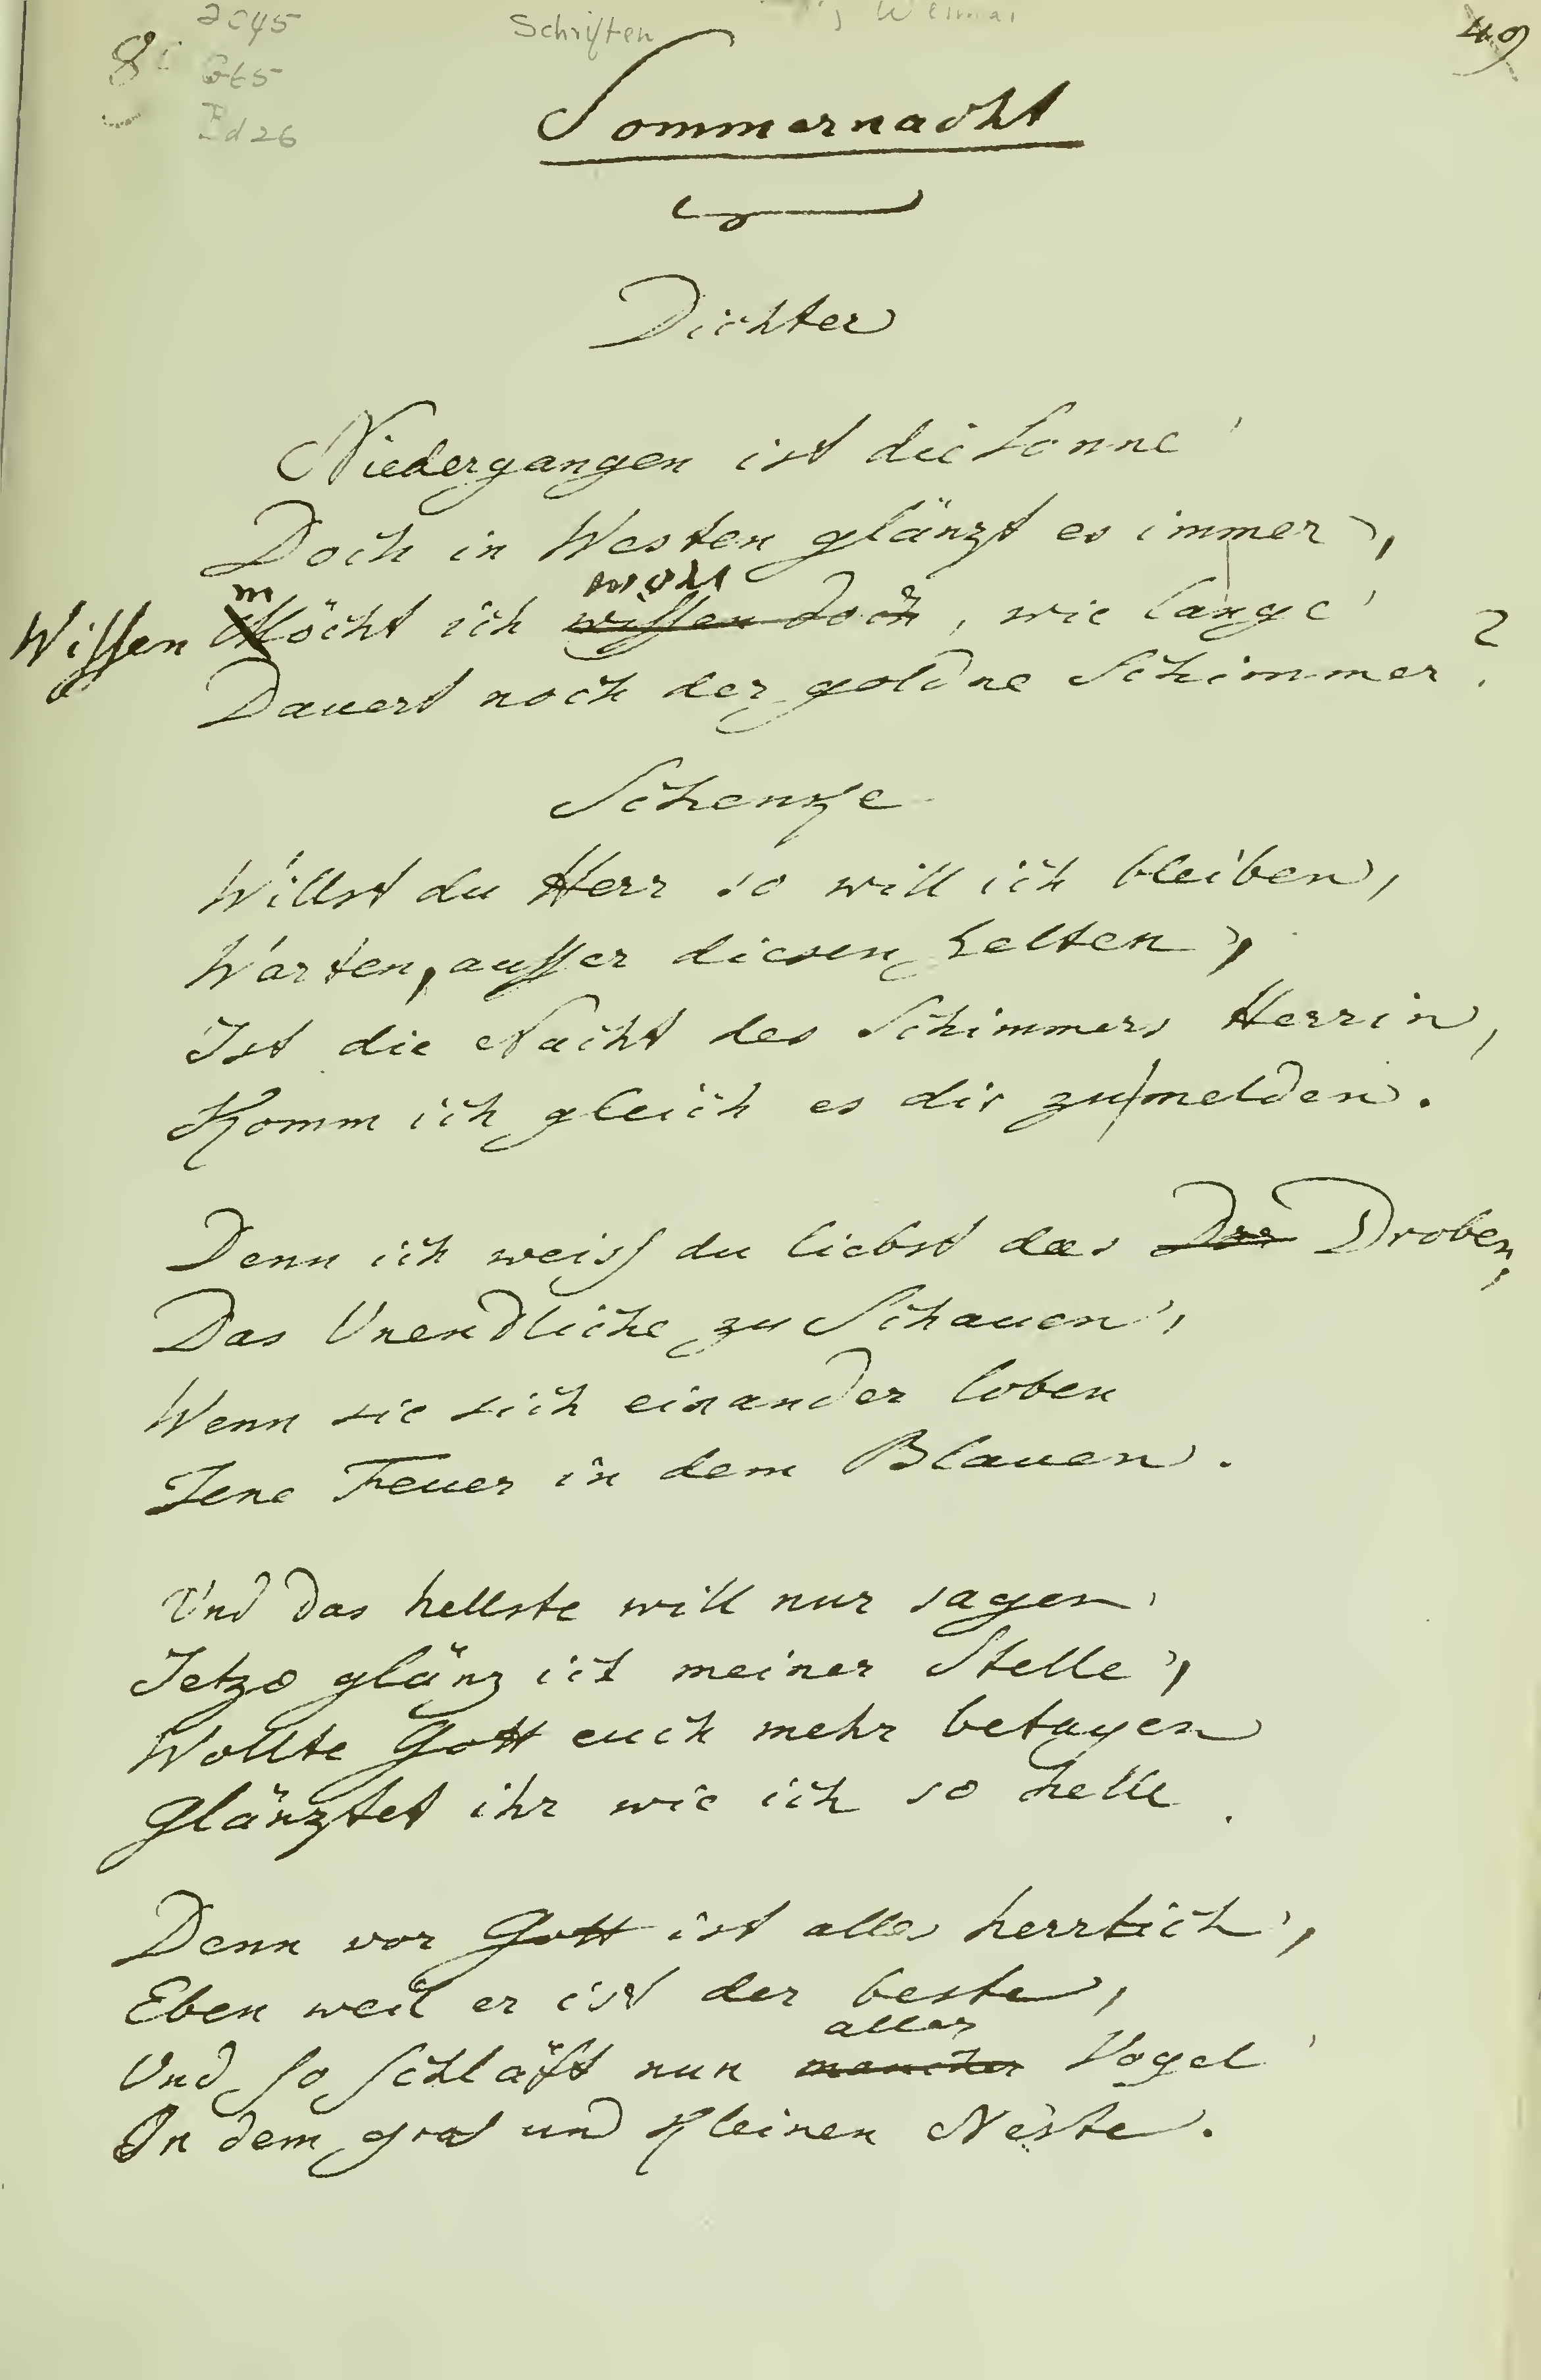 2045
Schriften Weimar
49
8
G65
Bd 26
Sommernacht
Dichter
Niedergangen ist die Sonne
Doch in Westen glänzt es immer,
Wissen möcht ich wohl wissen doch, wie lange
Dauert noch der goldne Schimmer?
Schenke
Willst du Herr so will ich bleiben,
Warten, ausser diesen Zelten,
Ist die Nacht des Schimmers Herrin,
Komm ich gleich es dir zu melden.
Denn ich weiss du liebst das Droben,
Das Unendliche zu Schauen,
Wenn sie sich einander loben
Jene Feuer in dem Blauen.
Und das hellste will nur sagen
Jetzo glänz ich meiner Stelle,
Wollte Gott euch mehr betagen
Glänztet ihr wie ich so helle.
Denn vor Gott ist alles herrlich,
Eben weil er ist der beste,
Und so schläft nun aller mancher Vogel
In dem gros und kleinen Neste.